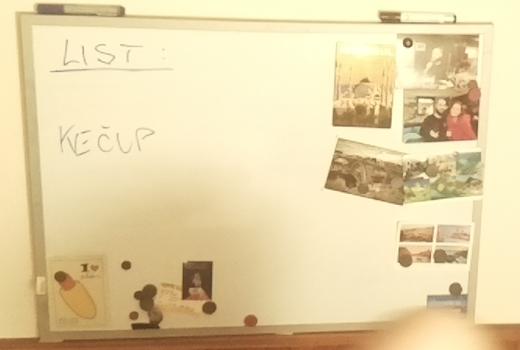 LIST:
KEČUP
I ❤